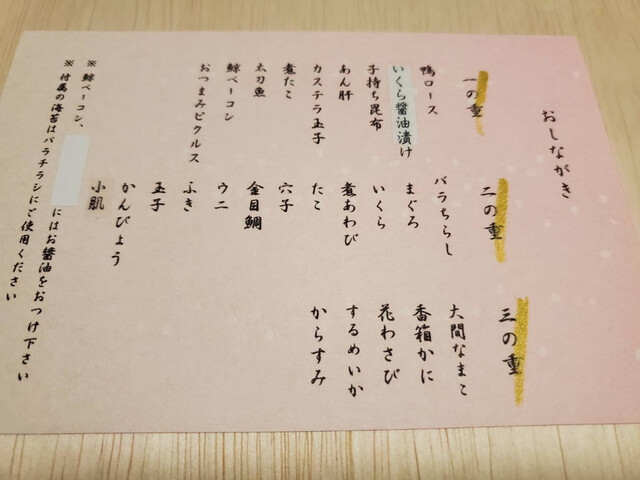 おしながき
一の重
鴨ロース
いくら醤油漬け
子持ち昆布
あん肝
カステラ玉子
煮たこ
太刀魚
鯨ベーコン
おつまみピクルス
二の重
バラちらし
まぐろ
いくら
煮あわび
たこ
穴子
金目鯛
ウニ
ふき
玉子
かんぴょう
小肌
三の重
大間なまこ
香箱かに
花わさび
するめいか
からすみ
※鯨ベーコン、 にはお醤油をおつけ下さい
※付属の海苔はバラチラシにご使用ください